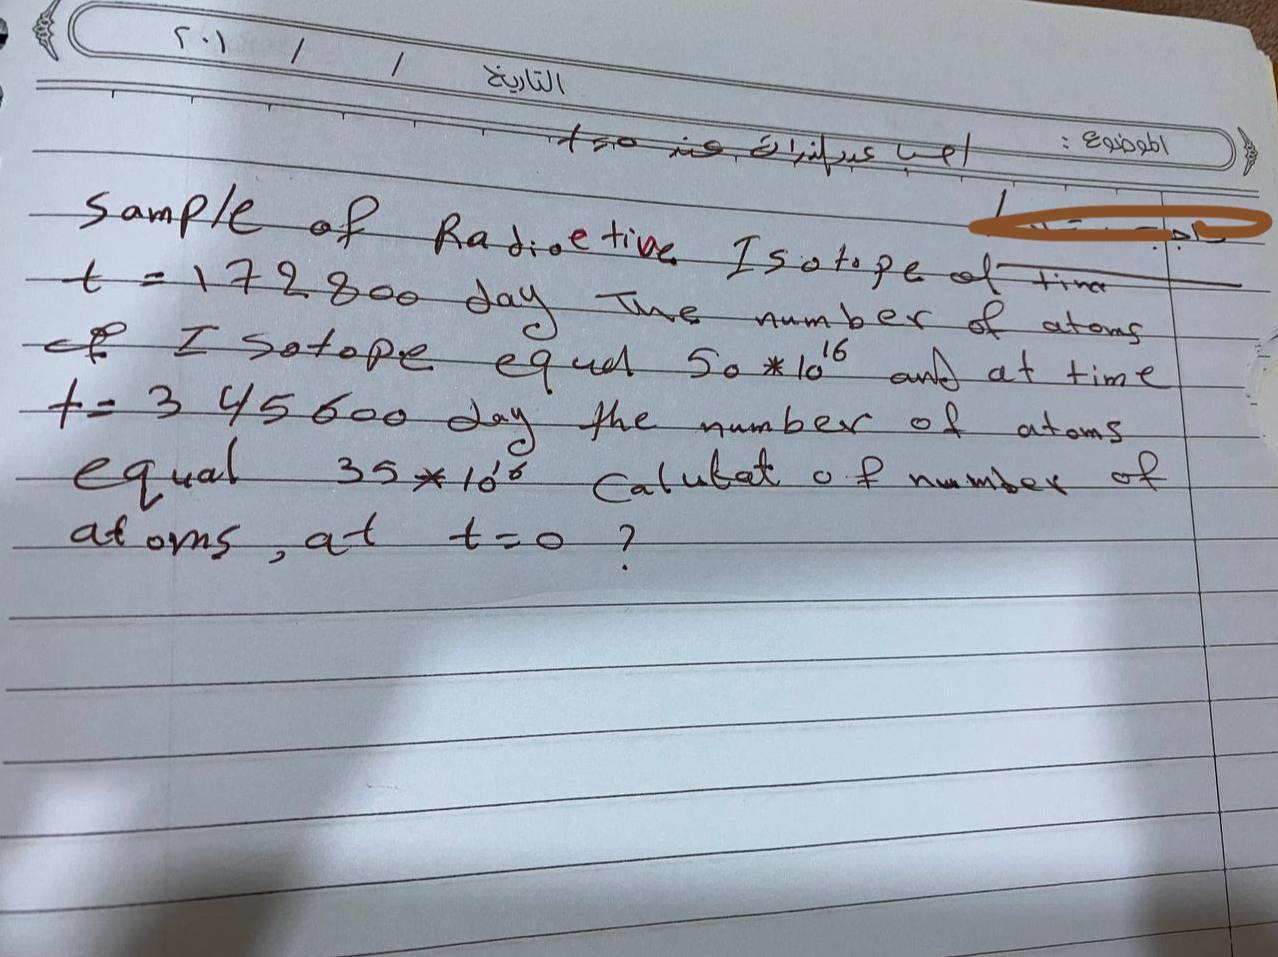 التاريخ / / ٢٠١
الموضوع :
احسب عدد الذرات عند t=0
Sample of Radioetive Isotope of time
t = 172800 day The number of atoms
of Isotope equal 50 * 10^16 and at time
t = 345600 day the number of atoms
equal 35 * 10^16 Calutat of number of
atoms, at t=0 ?